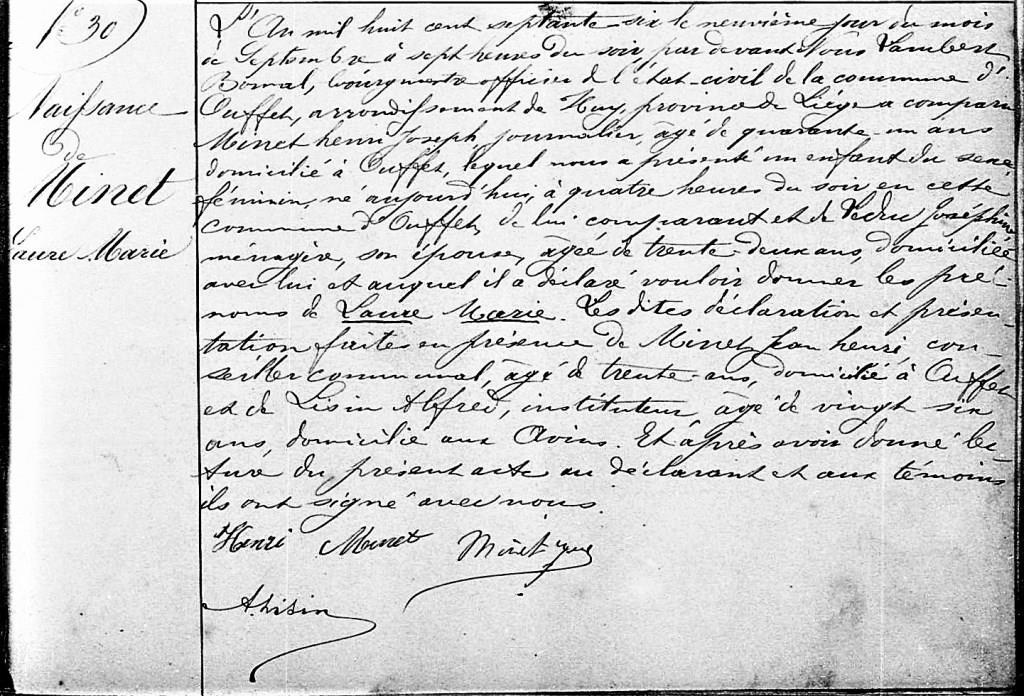 N° 30
Naissance
de
Minet
Laure Marie
L'An mil huit cent septante-six le neuvième jour du mois
de Septembre à sept heures du soir, par devant Nous Lambert
Bomal, bourgmestre officier de l'état-civil de la commune d'
Ouffet, arrondissement de Huy, province de Liège a comparu
Minet henri Joseph journalier, âgé de quarante-un ans
domicilié à Ouffet, lequel nous a présenté un enfant du sexe
féminin, né aujourd'hui, à quatre heures du soir en cette
commune d'Ouffet, de lui comparant et de Joséphine
ménagère, son épouse, âgée de trente-deux ans, domiciliée
avec lui et auquel il a déclaré vouloir donner les pré-
noms de Laure Marie. Les dites déclaration et présen-
tation faites en présence de Minet Jean henri, con-
seiller communal, âgé de trente-ans, domicilié à Ouffet
et de Lisin Alfred, instituteur âgé de vingt six
ans, domicilié aux Avins. Et après avoir donné lec-
ture du présent acte au déclarant et aux témoins
ils ont signé avec nous.
Henri Minet Minet
A. Lisin